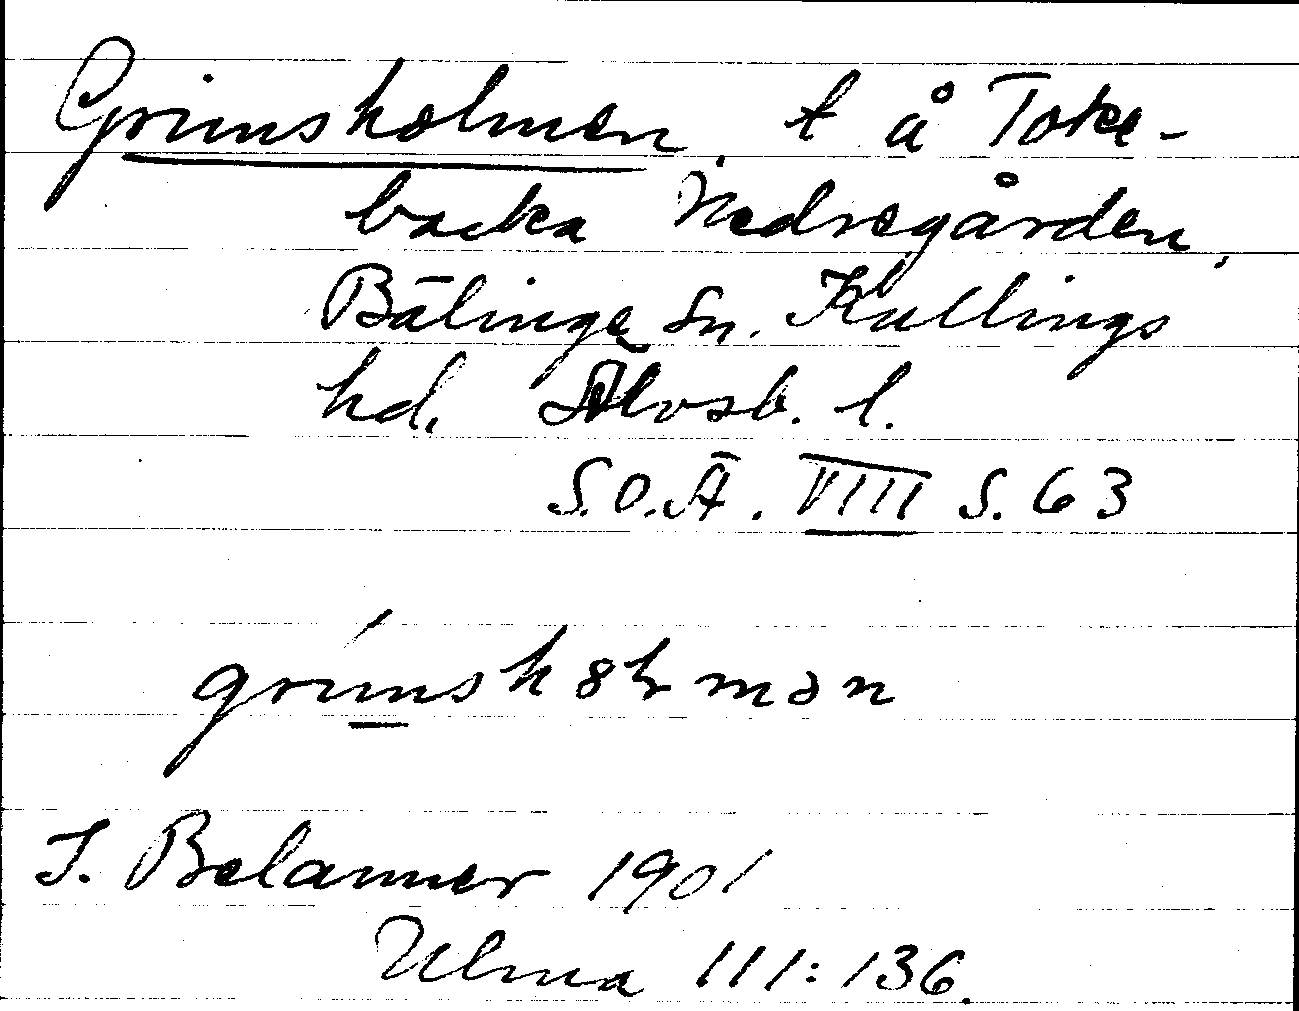 Grimsholmen, t å Toke-
backa Nedregården,
Bälinge sn. Kullings
hd. Älvsb. l.
S.O.Ä. VIII S. 63
J. Belanner 1901
Ulma 111:136.